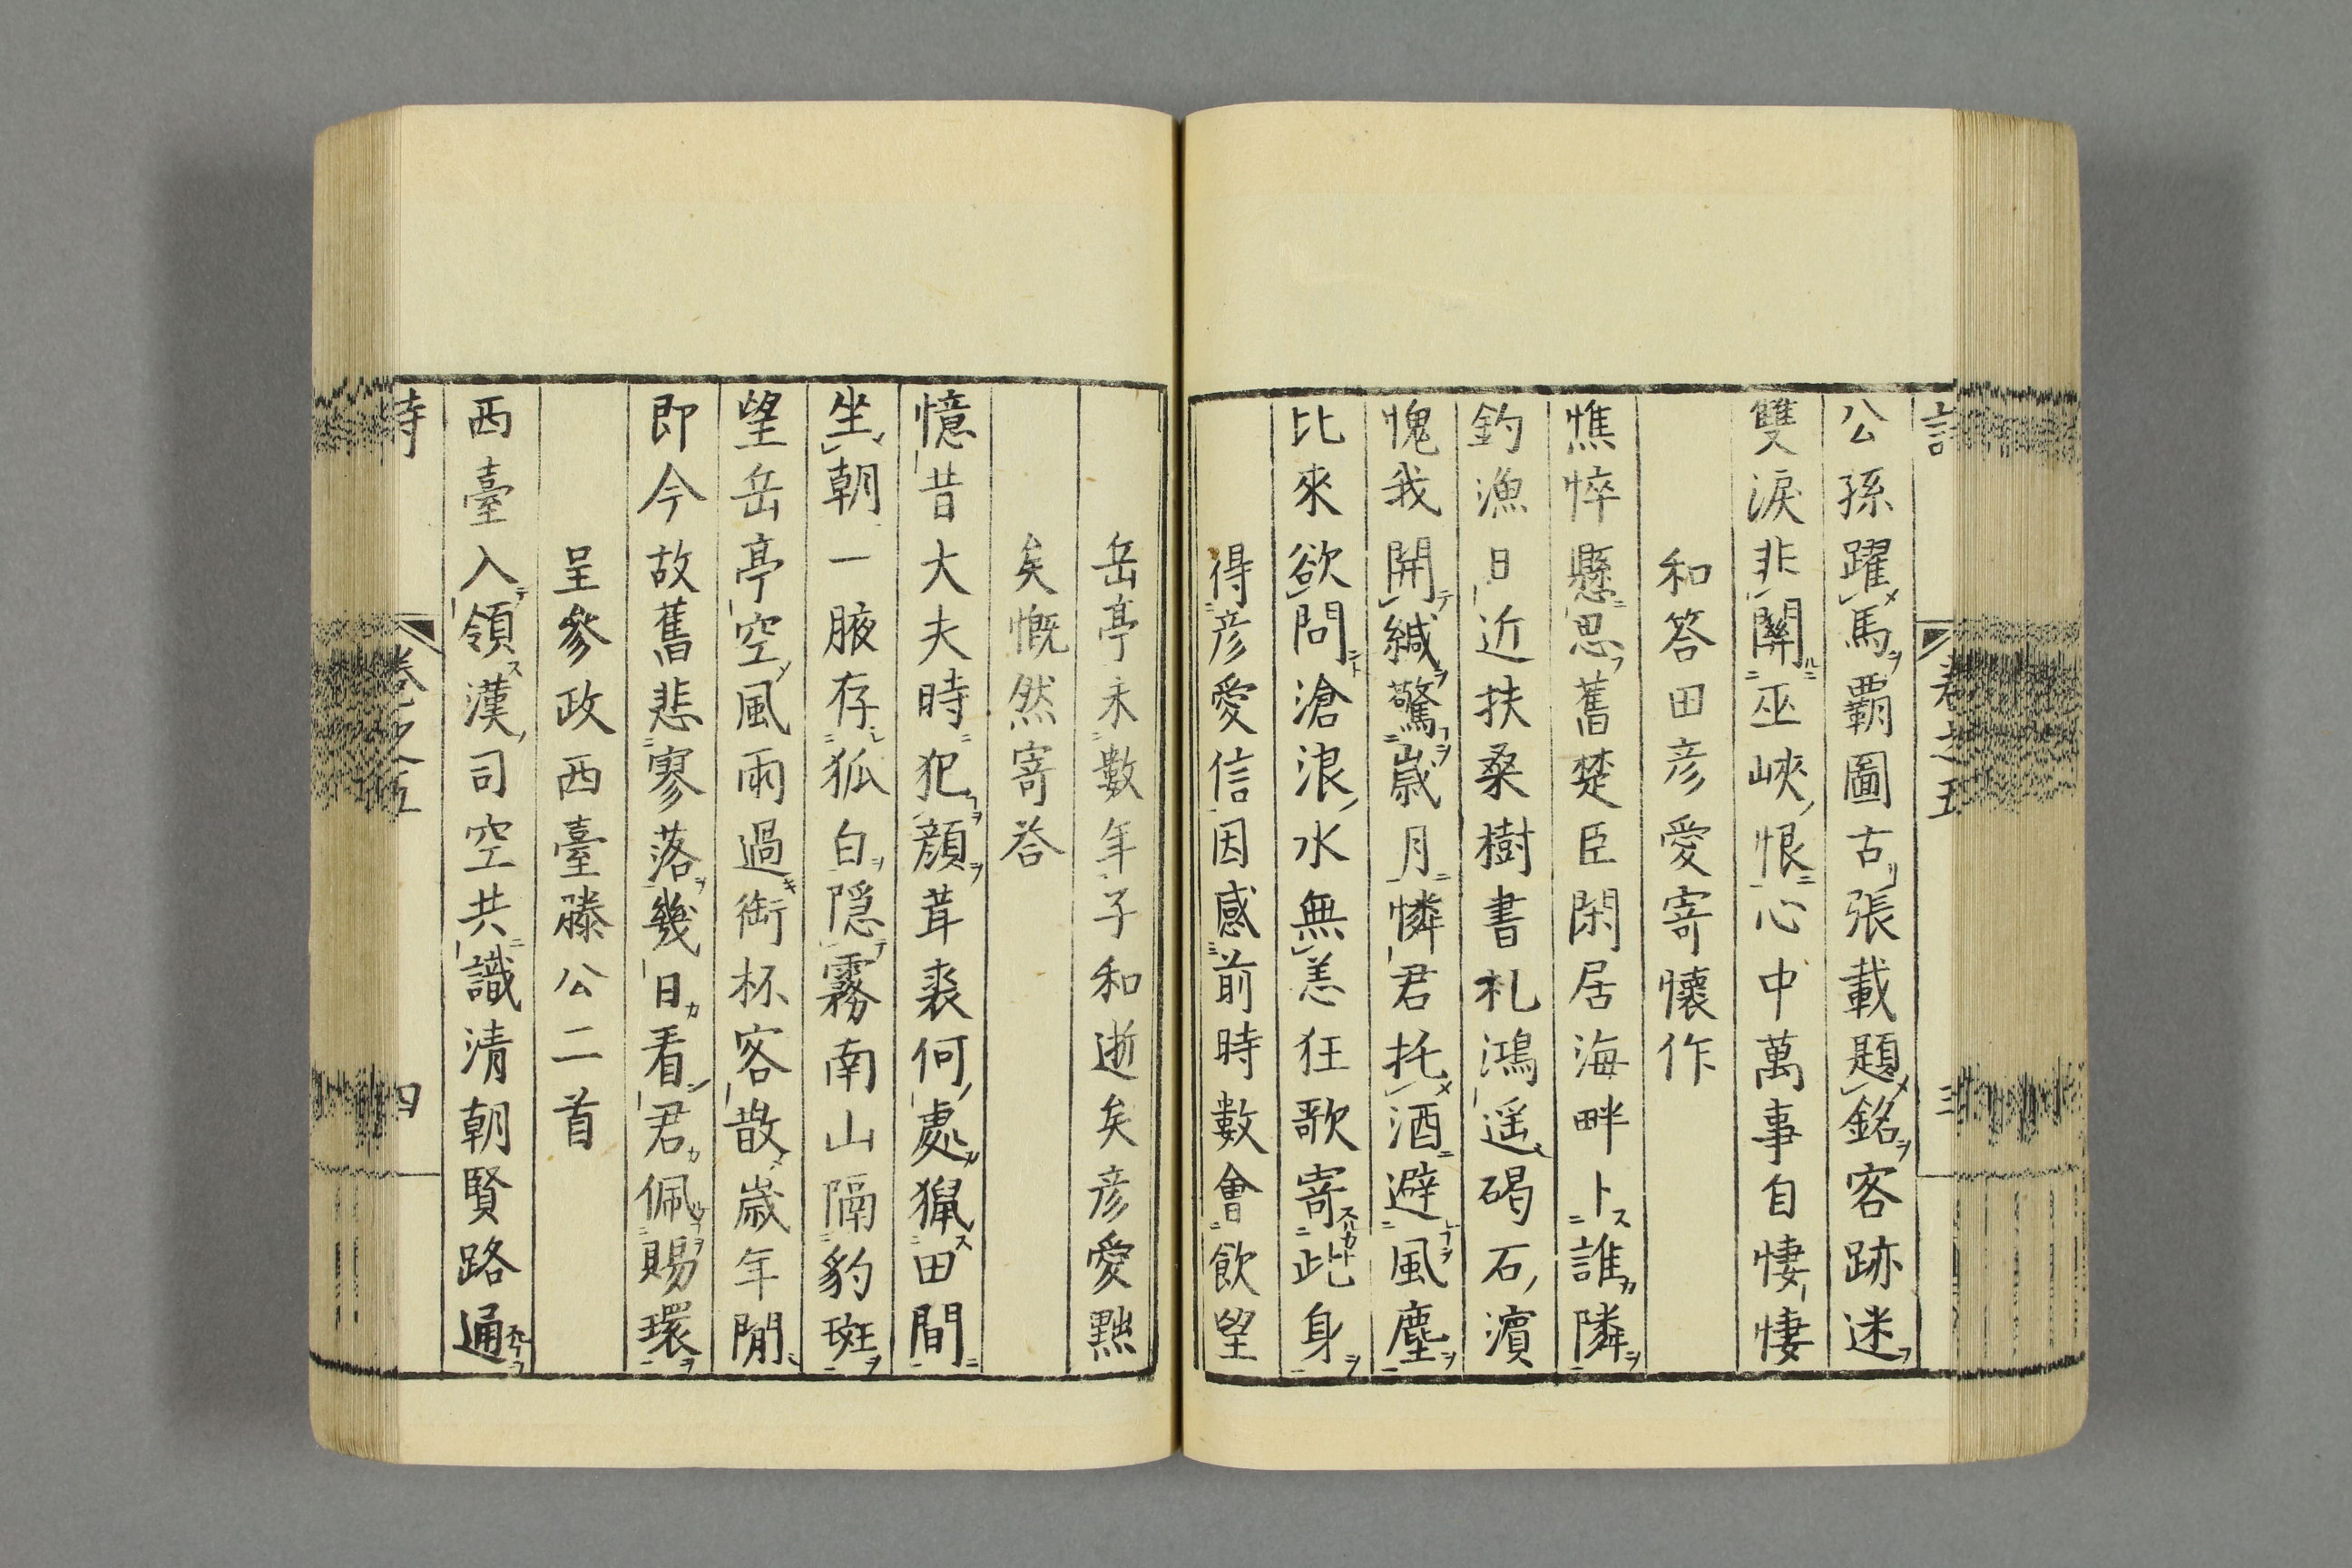 公孫躍馬覇圖古張載題銘客跡迷
雙淚非關巫峽恨心中萬事自悽悽
和答田彦愛寄懷作
憔悴懸思舊楚臣閑居海畔卜誰隣
釣漁日近扶桑樹書札鴻遥碣石濱
愧我開緘驚歲月憐君托酒避風塵
比來欲問滄浪水無恙狂歌寄此身
得彦愛信因感前時數會飲望
岳亭未數年子和逝矣彦愛黜
矣慨然寄答
憶昔大夫時犯顏茸裘何處猟田間
坐朝一腋存狐白隠霧南山隔豹斑
望岳亭空風雨過銜杯客散歲年閒
即今故舊悲寥落幾日看君佩賜環
呈參政西臺滕公二首
西臺入領漢司空共識清朝賢路通
卷之五
四